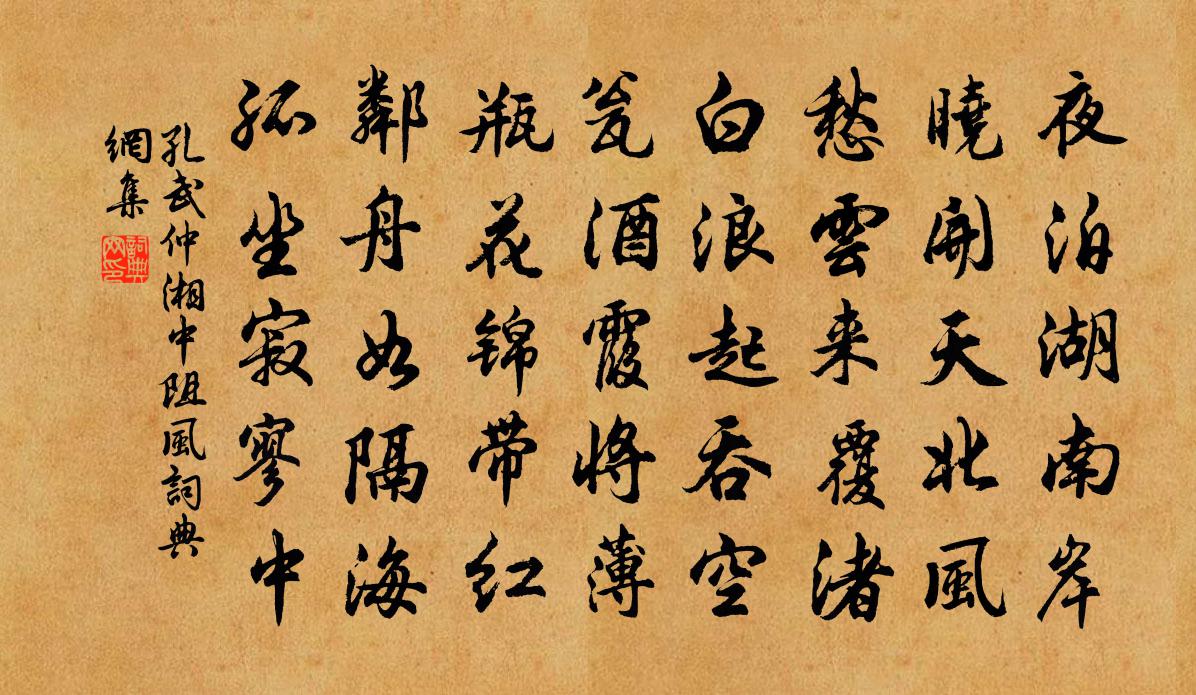 夜泊湖南岸
曉開天北風
愁雲来覆渚
白浪起吞空
瓮酒霞將薄
瓶花锦带红
鄰舟如隔海
孤坐寂寥中
孔武仲湘中阻風詞典
網集
詞典网印